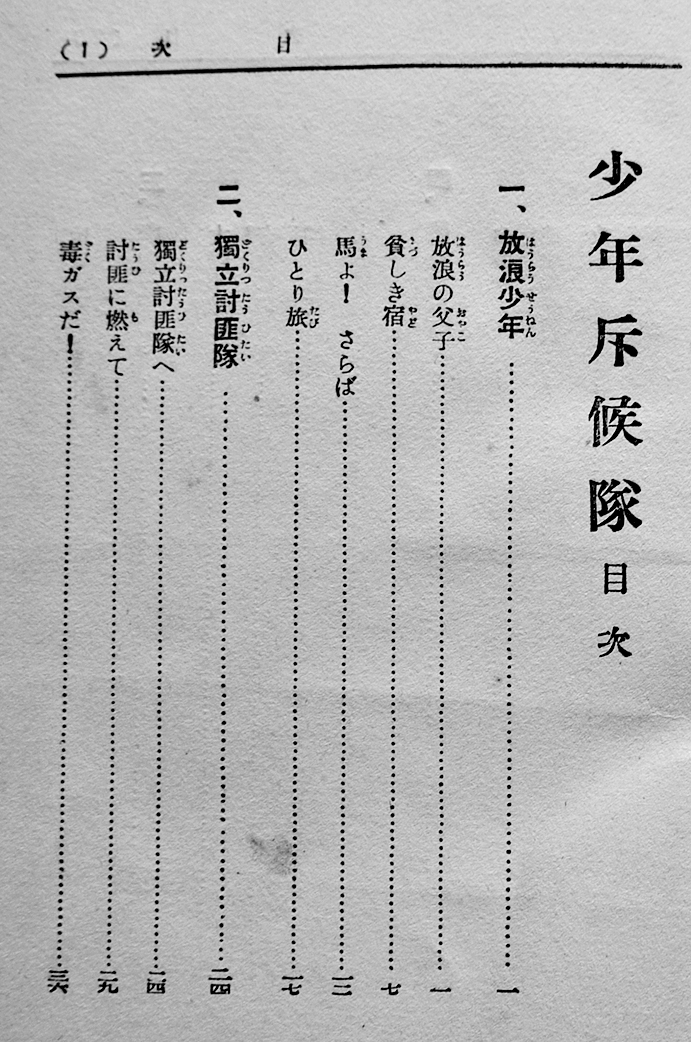 (1) 次 目
少年斥候隊 目次
一、放浪少年 一
放浪の父子 一
貧しき宿 七
馬よ! さらば 一二
ひとり旅 一七
二、獨立討匪隊 二四
獨立討匪隊へ 二四
討匪に燃えて 二九
毒ガスだ! 三六